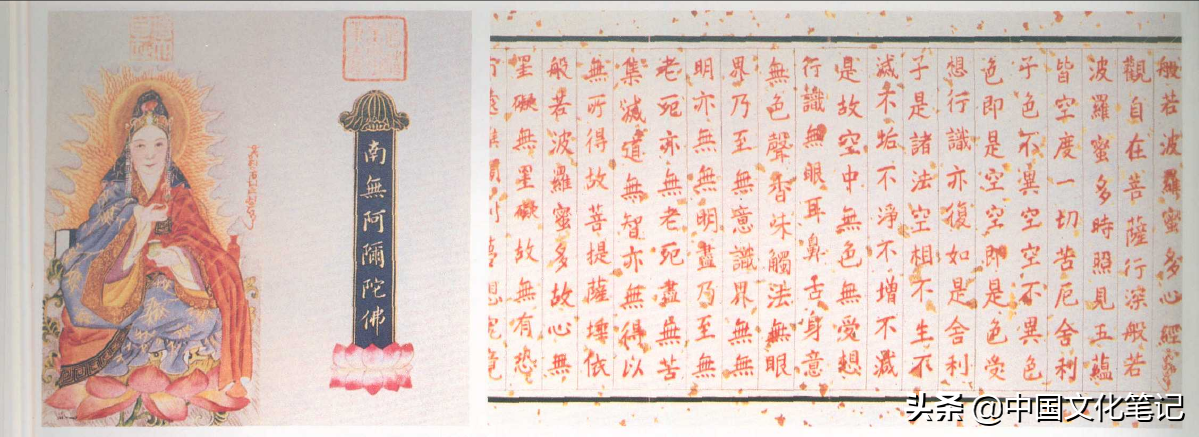 般若波羅蜜多心經
觀自在菩薩行深般若
波羅蜜多時照見五蘊
皆空度一切苦厄舍利
子色不異空空不異色
色即是空空即是色受
想行識亦復如是舍利
子是諸法空相不生不
滅不垢不淨不增不減
是故空中無色無受想
行識無眼耳鼻舌身意
無色聲香味觸法無眼
界乃至無意識界無無
明亦無無明盡乃至無
老死亦無老死盡無苦
集滅道無智亦無得以
無所得故菩提薩埵依
般若波羅蜜多故心無
罣礙無罣礙故無有恐
南無阿彌陀佛
头条 @中国文化笔记